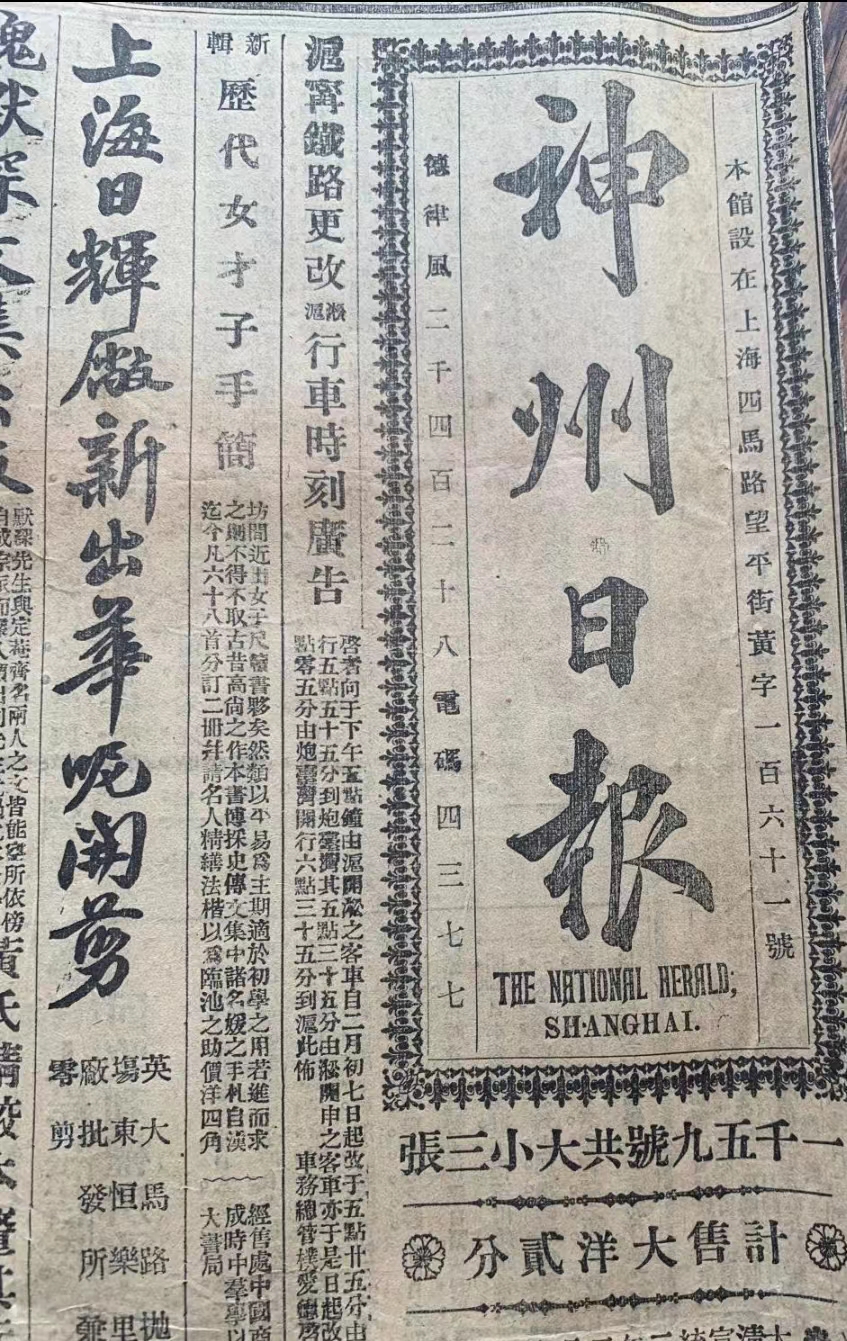 本館設在上海四馬路望平街黃字一百六十一號
神州日報
THE NATIONAL HERALD;
SHANGHAI.
德律風二千四百二十八電碼四三七七
一千五九號共大小三張
計售大洋貳分
滬寧鐵路更改淞滬行車時刻廣告
啓者向于下午五點鐘由滬開淞之客車自二月初七日起改于五點廿五分由
行五點五十五分到炮臺灣其五點三十五分由淞開申之客車亦于是日起改
點零五分由炮臺灣開行六點三十五分到滬此佈
車務總管樸愛德啓
新輯
歷代女才子手簡
坊間近出女子尺牘書夥矣然類以平易爲主期適於初學之用若進而求
之勢不得不取古昔高尙之作本書博採史傳文集中諸名媛之手札自漢
迄今凡六十八首分訂二冊幷請名人精繕法楷以爲臨池之助價洋四角
經售處中國商
成時中羣學以
大書局
上海日輝廠新出華呢開剪
英大馬路拋
塲東恒樂里
廠批發所兼
零剪
默深先生與定菴齊名兩人之文皆能空所依傍